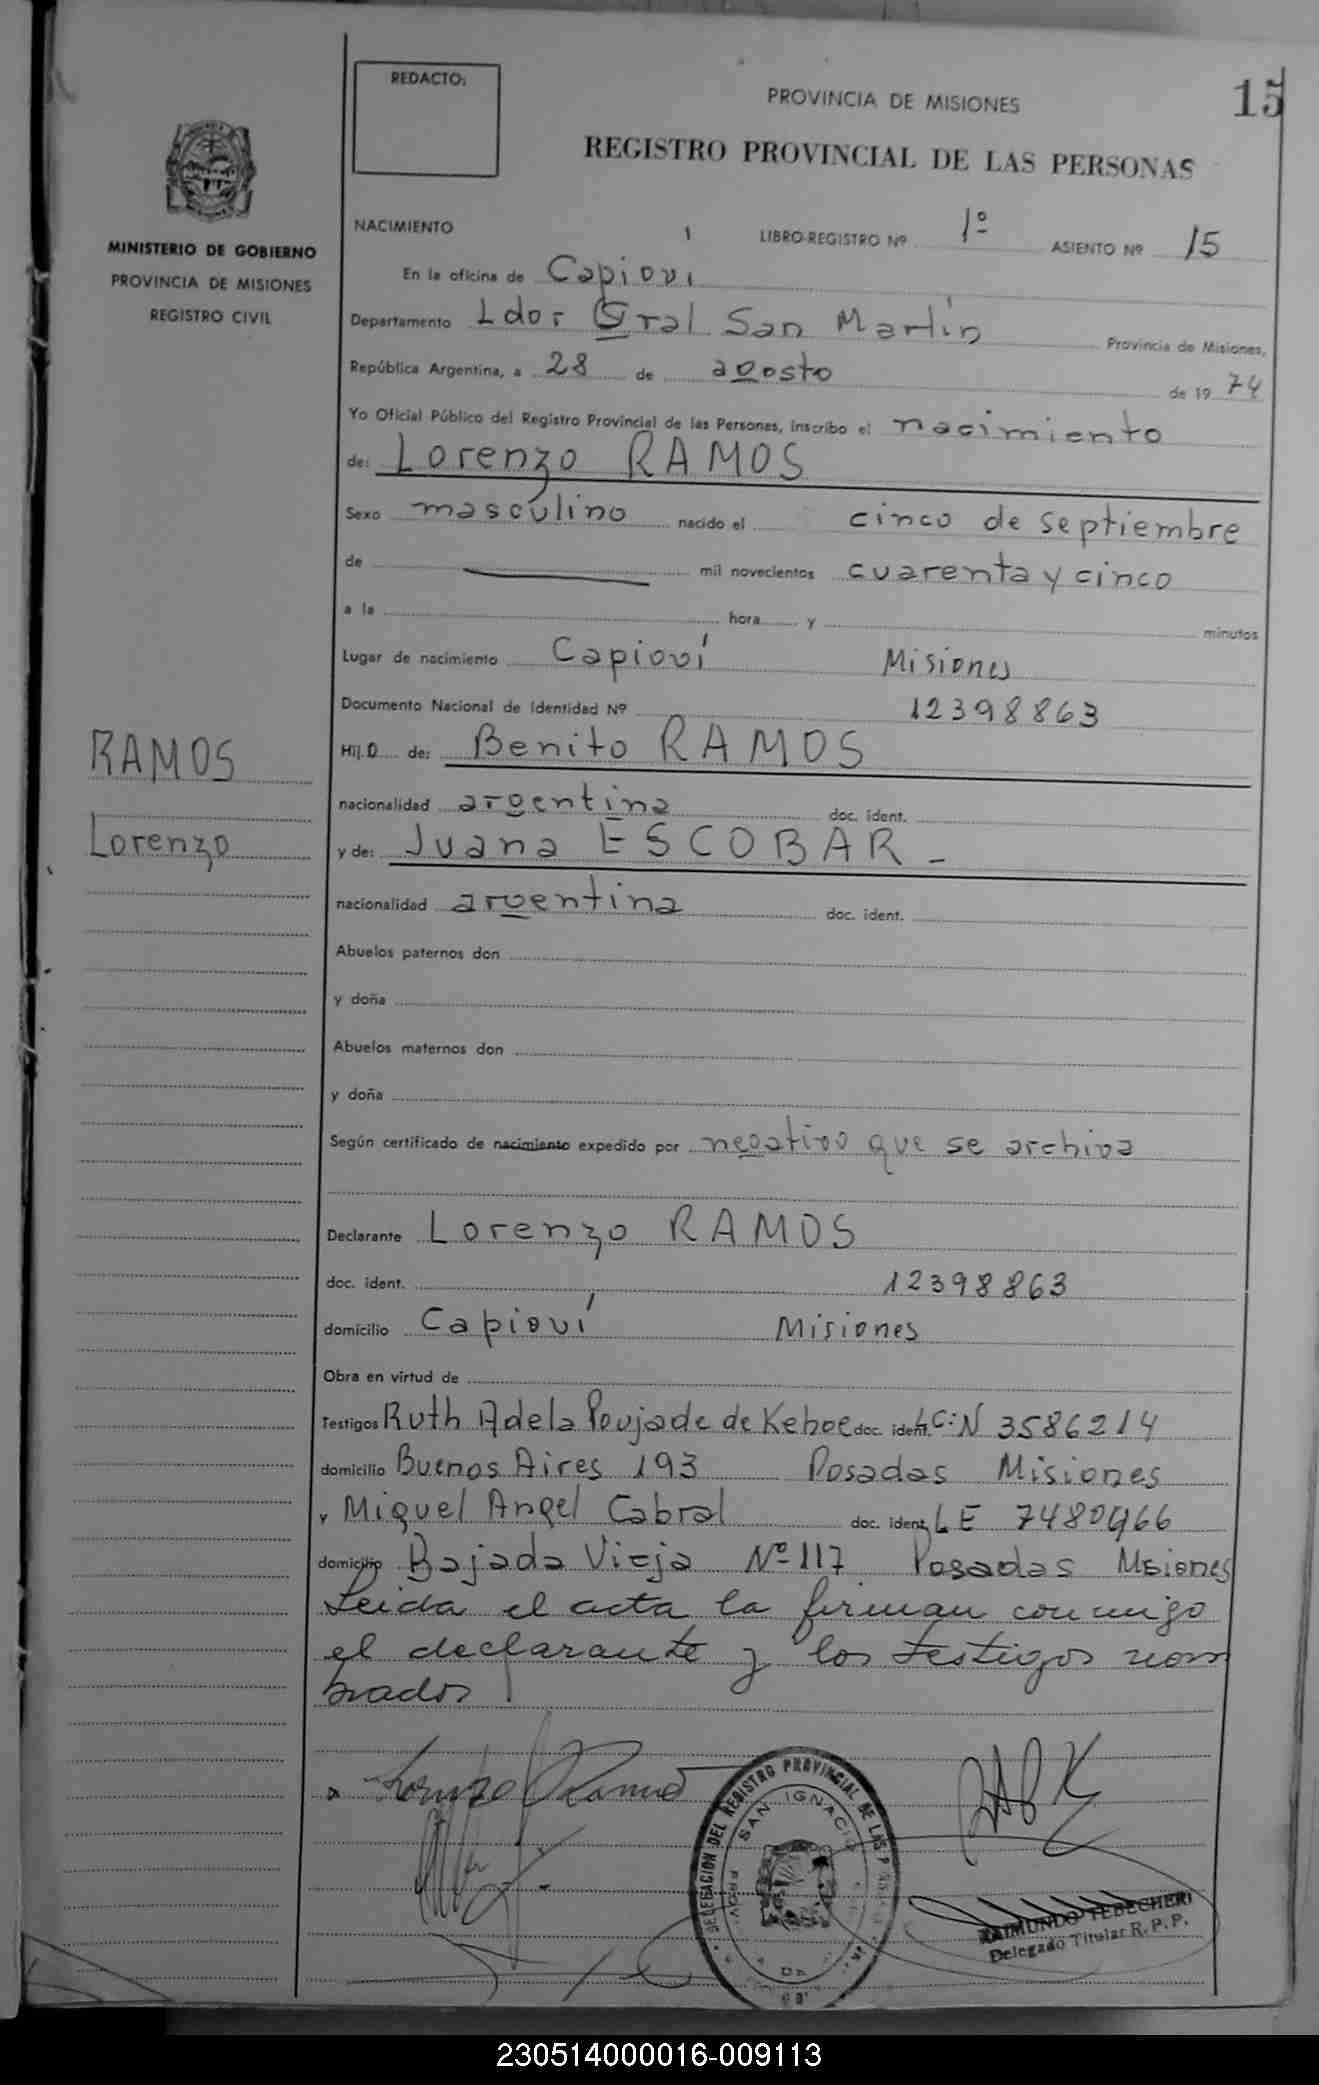 15
REDACTO:
PROVINCIA DE MISIONES
REGISTRO PROVINCIAL DE LAS PERSONAS
MINISTERIO DE GOBIERNO
PROVINCIA DE MISIONES
REGISTRO CIVIL
RAMOS
Lorenzo
NACIMIENTO LIBRO-REGISTRO Nº 1º ASIENTO Nº 15
En la oficina de Capioví
Departamento Ldor Gral San Martín Provincia de Misiones,
República Argentina, a 28 de agosto de 19 74
Yo Oficial Público del Registro Provincial de las Personas, inscribo el nacimiento
de: Lorenzo RAMOS
Sexo masculino nacido el cinco de septiembre
de mil novecientos cuarenta y cinco
a la hora y minutos
Lugar de nacimiento Capioví Misiones
Documento Nacional de Identidad Nº 12398863
Hij.o de: Benito RAMOS
nacionalidad argentina doc. ident.
y de: Juana ESCOBAR -
nacionalidad argentina doc. ident.
Abuelos paternos don
y doña
Abuelos maternos don
y doña
Según certificado de nacimiento expedido por negativo que se archiva
Declarante Lorenzo RAMOS
doc. ident. 12398863
domicilio Capioví Misiones
Obra en virtud de
Testigos Ruth Adela Poujade de Kehoe doc. ident. LC: N 3586214
domicilio Buenos Aires 193 Posadas Misiones
y Miguel Angel Cabral doc. ident. LE 7480966
domicilio Bajada Vieja Nº 117 Posadas Misiones
Leida el acta la firman conmigo
el declarante y los testigos nom
brados
Lorenzo Ramos
DELEGACION DEL REGISTRO PROVINCIAL DE LAS P
SAN IGNACIO
PROV.
RAIMUNDO TEBECHERI
Delegado Titular R. P. P.
230514000016-009113